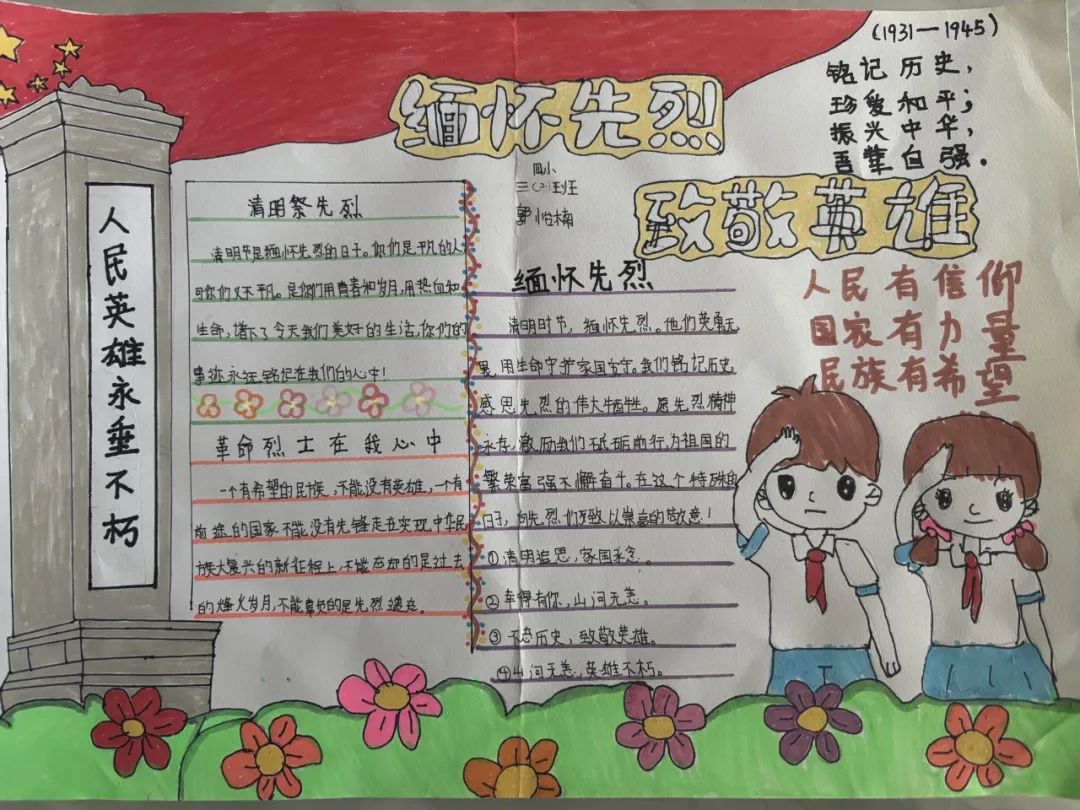 (1931—1945)
铭记历史,
珍爱和平;
振兴中华,
吾辈自强.
缅怀先烈
致敬英雄
四小
三(二)班
郭怡楠
人民英雄永垂不朽
清明祭先烈
清明节是缅怀先烈的日子。你们是平凡的人
可你们又不平凡。是你们用青春和岁月,用热血和
生命,搭下了今天我们美好的生活,你们的
事迹永远铭记在我们的心中!
革命烈士在我心中
一个有希望的民族,不能没有英雄,一个有
前途的国家不能没有先锋走在实现中华民
族大复兴的新征程上,不能忘却的是过去
的烽火岁月,不能辜负的是先烈遗志。
缅怀先烈
清明时节,缅怀先烈。他们英勇无
畏,用生命守护家国安宁。我们铭记历史,
感恩先烈的伟大牺牲。愿先烈精神
永存,激励我们砥砺前行,为祖国的
繁荣富强不懈奋斗。在这个特殊的
日子,向先烈们致以崇高的敬意!
①清明追思,家国永念。
②幸得有你,山河无恙。
③不忘历史,致敬英雄。
④山河无恙,英雄不朽。
人民有信仰
国家有力量
民族有希望